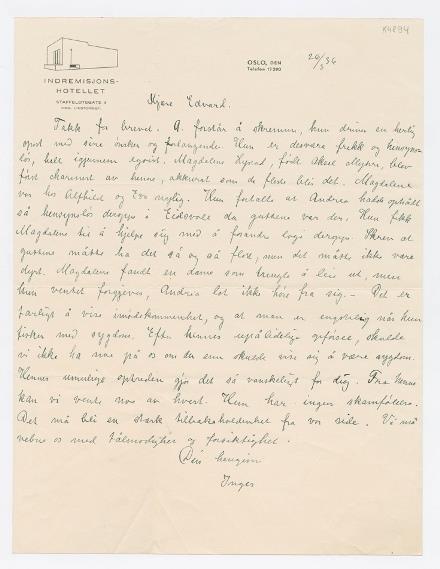 K4894
INDREMISJONS-
HOTELLET
STAFFELDTSGATE 4
OSLO, DEN 26/3 36
Telefon 17390
Kjære Edvard.
Takk for brevet. A. forstår å skremme, hun driver en hertig
opst med sine ønsker og forlangende. Hun er desverre frekk og hensyns-
løs, helt igjennem egoist. Magdalene født Aksel blev
først charmert av henne, akkurat som de fleste blir det. Magdalene
var hos Alfhild og Hun fortalte at Andrea hadde optrått
så hensynsløs dengang i Eidsvolle da guttene var der. Hun fikk
Magdalene til å hjelpe sig med å forandre logi dengang. Skrev at
guttene måtte ha det så og så flott, men det måtte ikke være
dyrt. Magdalene fandt en dame som trengte å leie ut, men
hun ventet forgjeves, Andrea lot ikke høre fra sig. - Det er
farligt å vise imøtekommenhet, og at man er engstelig når hun
fisker med sygdom. Efter hennes upålidelige skulde
vi ikke ha noe på os om du enn skulde vise sig å være sygdom.
Hennes umulige optreden gjør det så vanskeligt for dig. Fra henne
kan vi vente noe av hvert. Hun har ingen skamfølelse.
Det må bli en sterk tilbakeholdenhet fra vor side. Vi må
vebne os med tålmodighet og forsiktighet.
Din hengivne
Inger